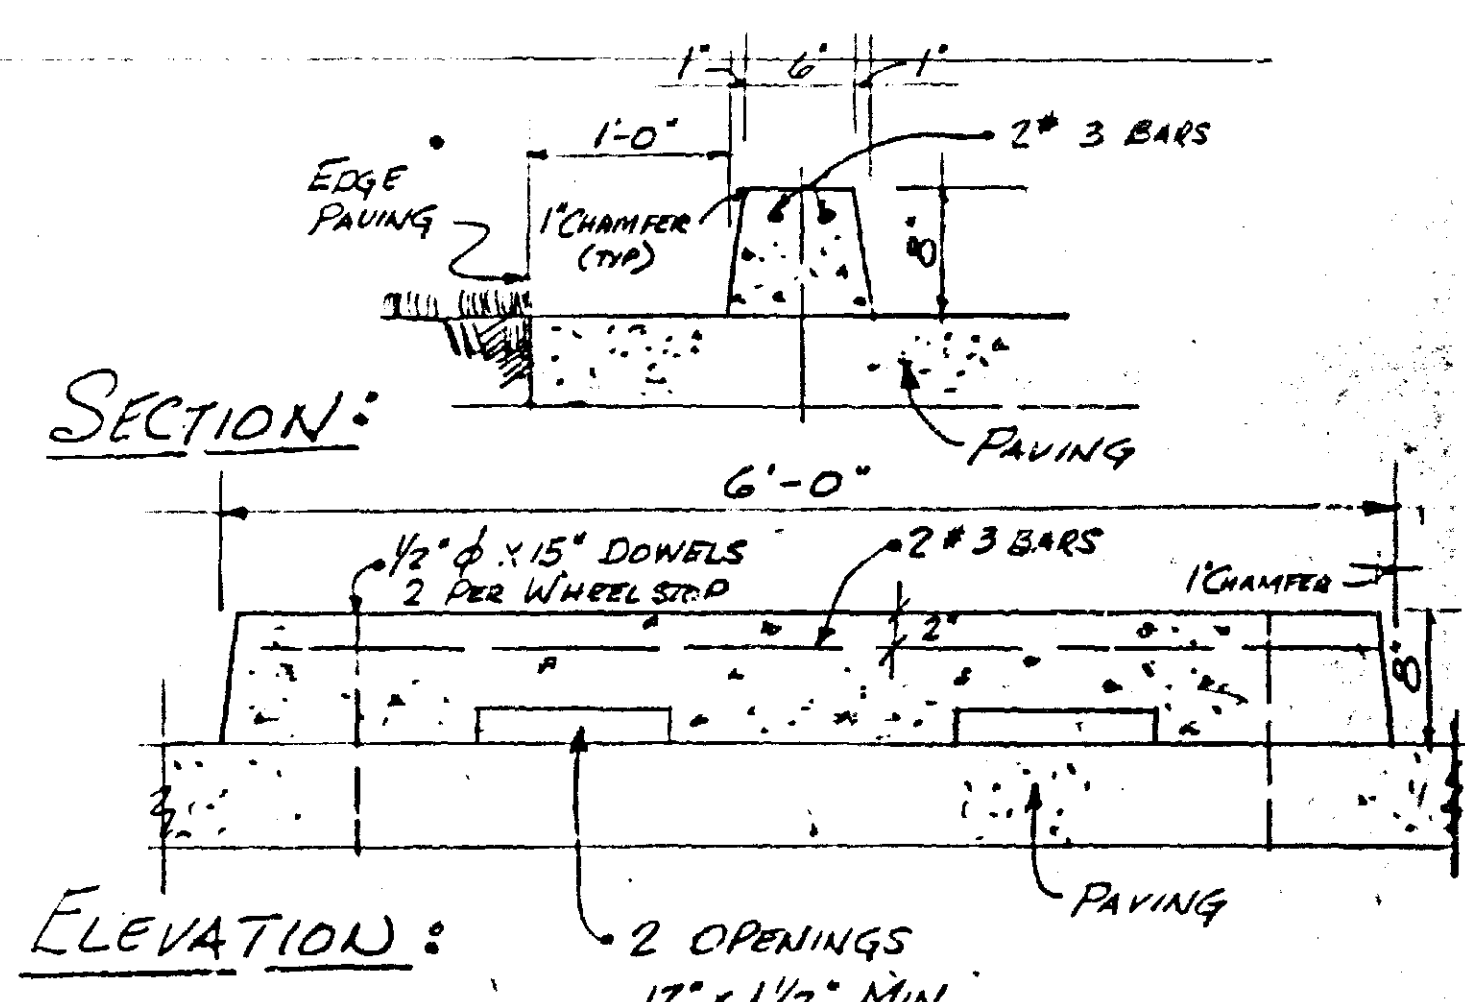 1" 6" 1"
1'-0"
2# 3 BARS
EDGE
PAVING
1" CHAMFER
(TYP)
8"
SECTION:
PAVING
6'-0"
1/2" φ x 15" DOWELS
2 PER WHEEL STOP
2 # 3 BARS
1" CHAMFER
2"
8"
PAVING
ELEVATION:
2 OPENINGS
12" x 1 1/2" MIN